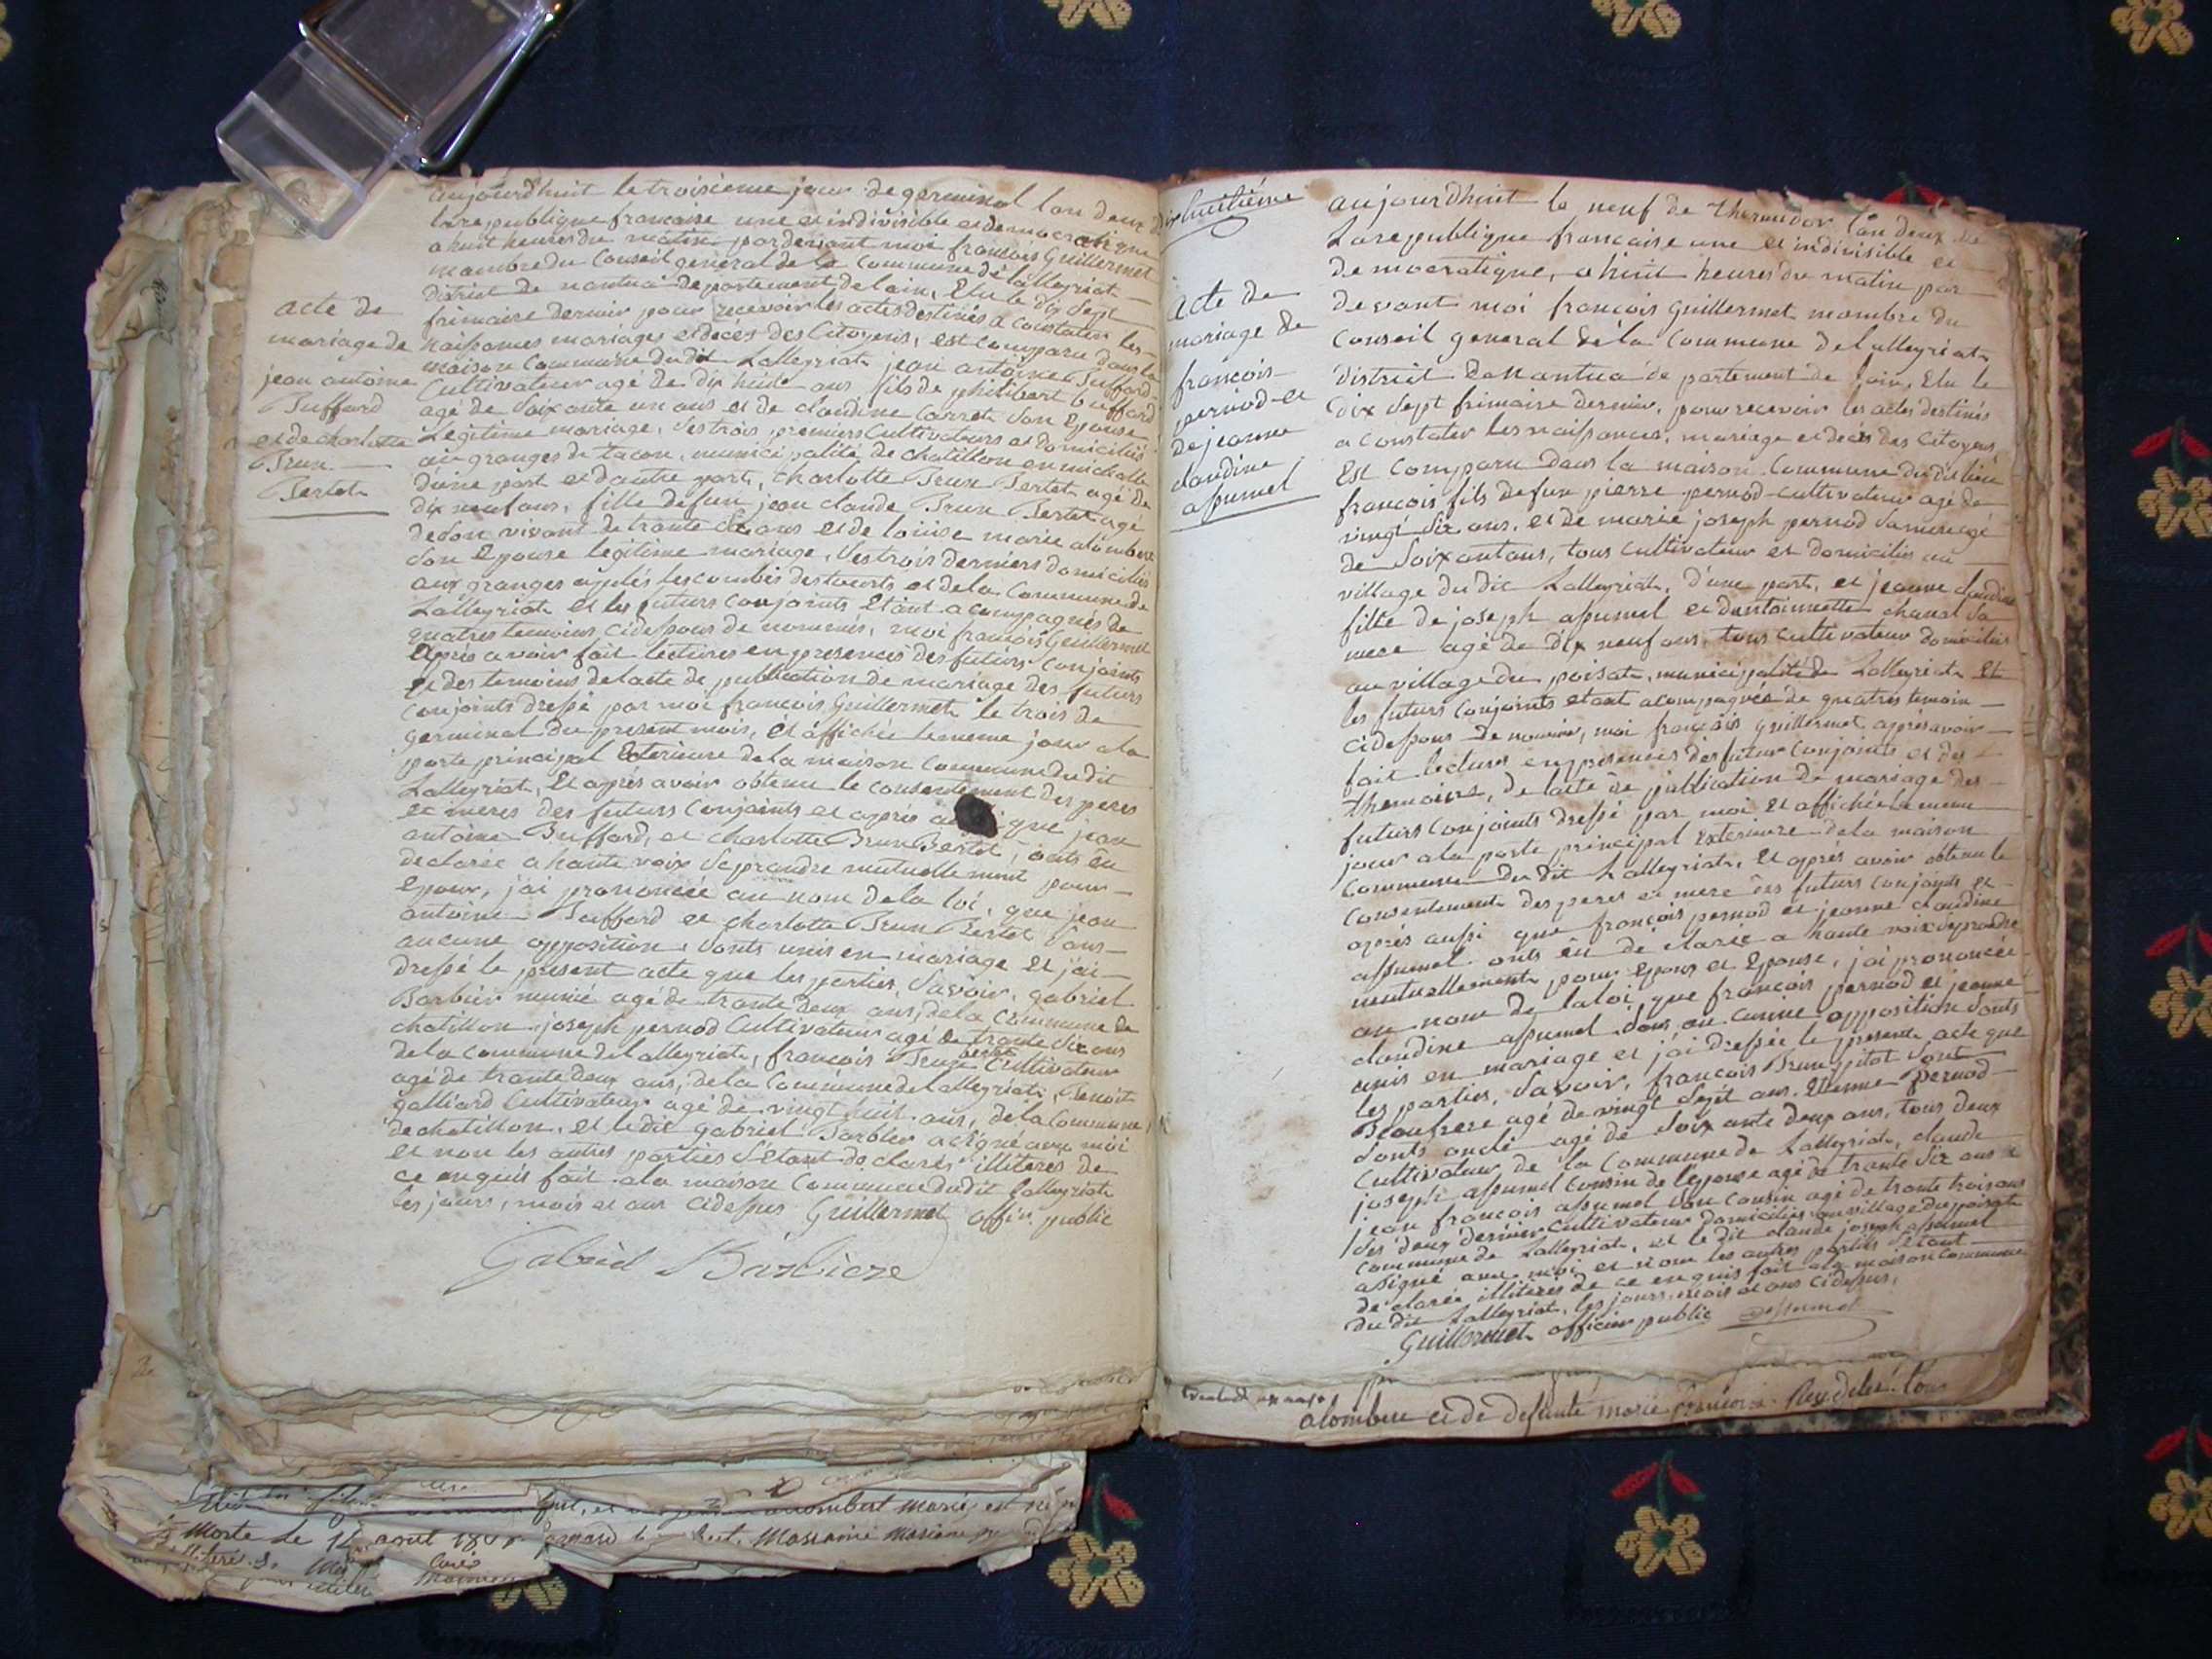 acte de
mariage de
jean antoine
Buffard
et de charlotte
Brun
Bertet
aujourdhuit le troisieme jour de germinal lan deux de
la republique francaise une et indivisible et democratique
a huit heures du matin par devant moi francois Guillermet
mambre du Conseil general de la Commune de lalleyriat
district de nantua departement de lain, Elu le dix sept
frimaire dernier pour recevoir les actes destinés a constater les
naissances mariages et decés des Citoyens, est comparu dans la
maison Commune du dit Lalleyriat jean antoine Buffard
Cultivateur agé de dix huit ans fils de philibert buffard
agé de soixante un ans et de claudine Carret son Epouse
Legitime mariage, ses trois premiers Cultivateurs et domiciliés
aux granges du tacon, municipalité de chatillon en michaille
dune part et dautre part, charlotte Brun Bertet agé de
dix neuf ans, fille defeu jean claude Brun Bertet agé
de son vivant de trante six ans et de louise marie alombere
son Epouse legitime mariage, ses trois derniers domiciliés
aux granges apelés les combes et de la Commune de
Lalleyriat et les futurs conjoints Etant acompagnés de
quatres temoins cidessous de nommés, moi francois Guillermet
Aprés avoir fait lectures en presences des futurs Conjoints
et des temoins de lacte de publication de mariage des futurs
conjoints dressé par moi francois Guillermet le trois de
germinal du present mois, Et affichée le meme jour a la
porte principal Exterieure de la maison Commune du dit
Lalleyriat, Et aprés avoir obtenu le consentement des peres
et meres des futurs Conjoints et aprés que jean
antoine Buffard, et charlotte Brun Bertet, onts eu
declarée a haute voix se prandre mutuellement pour
Epoux, jai prononcée au nom de la loi, que jean
antoine Buffard et charlotte Brun Bertet sans
aucune opposition, sonts unis en mariage Et jai
dressé le present acte que les parties, savoir, gabriel
Barbier agé de trante deux ans, de la Commune de
chatillon, joseph pernod Cultivateur agé de trante six ans
de la commune de lalleyriat, francois Brun bertet Cultivateur
agé de trante deux ans, de la Commune de lalleyriat, Benoit
galliard Cultivateur agé de vingt huit ans, de la Commune
de chatillon, et le dit gabriel Barbier a signé avec moi
et non les autres parties s'etant de clarés illiteres de
ce enquis fait a la maison Commune du dit Lalleyriat
les jours, mois et ans cidessus Guillermet offir. public
Gabriel Barbiere
alombert marie, est
Morte le 14 aout
dix huitiéme
acte de
mariage de
francois
pernod et
de jeanne
claudine
assumel
aujourdhuit le neuf de thermidor lan deux de
La republique francaise une et indivisible et
democratique, a huit heures du matin par
devant moi francois Guillermet mambre du
Conseil general de la Commune de lalleyriat
district de Nantua departement de lain, Elu le
dix sept frimaire dernier, pour recevoir les actes destinés
a constater les naissances, mariage et decés des Citoyens
Est Comparu dans la maison Commune du dit lieu
francois fils defeu pierre pernod cultivateur agé de
vingt six ans, et de marie joseph pernod sa mere agé
de soixantans, tous cultivateur et domiciliés au
village du dit Lalleyriat, d'une part, et jeanne claudine
fille de joseph assumel et dantoinnette chanal sa
mere agé de dix neuf ans, tous cultivateur domiciliés
au village du poisat, municipalité de Lalleyriat Et
les futurs conjoints etant acompagnés de quatres temoin
cidessous de nommé, moi francois guillermet aprés avoir
fait lectures en presences des futur Conjoints et des
themoins, de lacte de publication de mariage des
futurs Conjoints dressé par moi et affichée le meme
jour a la porte principal Exterieure de la maison
commune du dit Lalleyriat, et aprés avoir obtenu le
Consentement des peres et mere des futurs conjoints et
aprés aussi que francois pernod et jeanne claudine
assumel onts eu dé clarée a haute voix se prandre
mutuellement pour Epoux et Epouse, j'ai prononcée
au nom de la loi, que francois pernod et jeanne
claudine assumel sans au cunne opposition sonts
unis en mariage et j'ai dressée le present acte que
les parties, savoir, francois Brun pitot sont
Beaufrere agé de vingt sept ans, Etienne pernod
sonts oncle agé de soixante deux ans, tous deux
Cultivateur de la Commune de Lalleyriat, claude
joseph assumel cousin de lepouse agé de trante six ans
jean francois assumel son Cousin agé de trante trois ans
ses deux dernier Cultivateur domiciliés au village du poisat
commune de Lalleyriat, et le dit claude joseph assumel
a signé avec moi et non les autres parties s'etant
de clarée illiteres de ce enquis fait a la maison Commune
du dit Lalleyriat, les jours, mois et ans cidessus,
Guillermet officier public assumel
alombere et de defunte marie